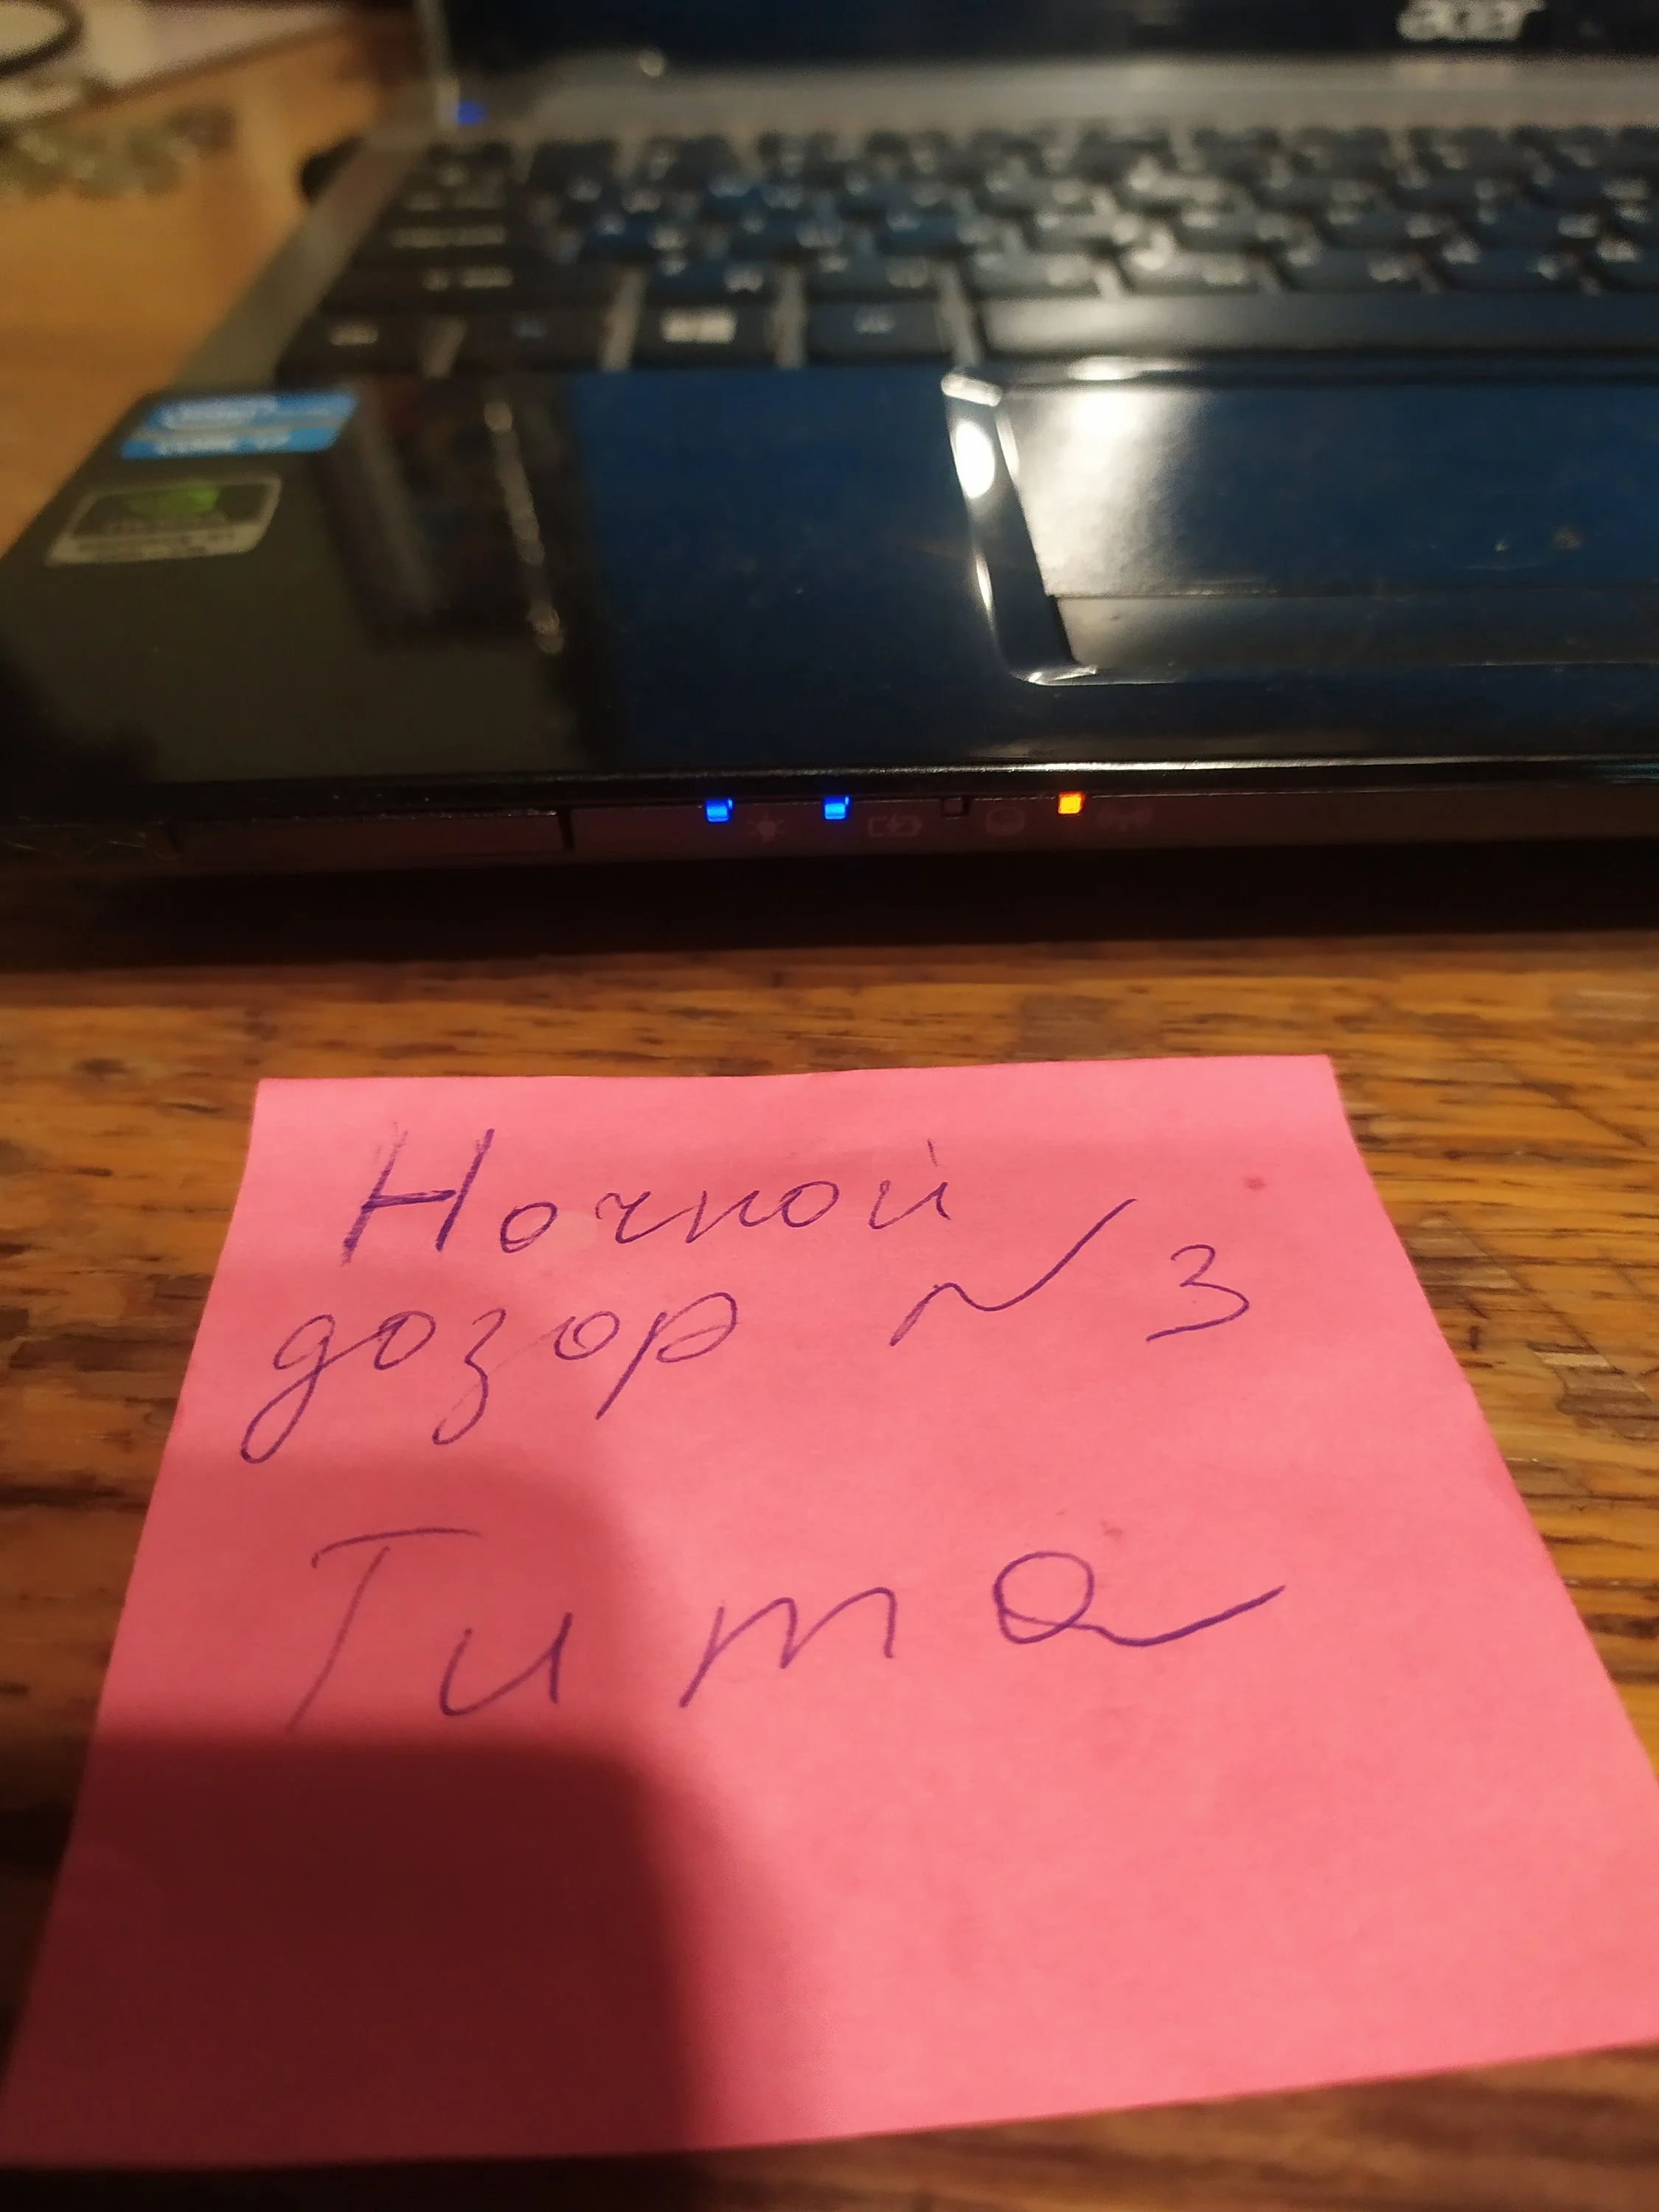 acer
Ночной
дозор № 3
Тита